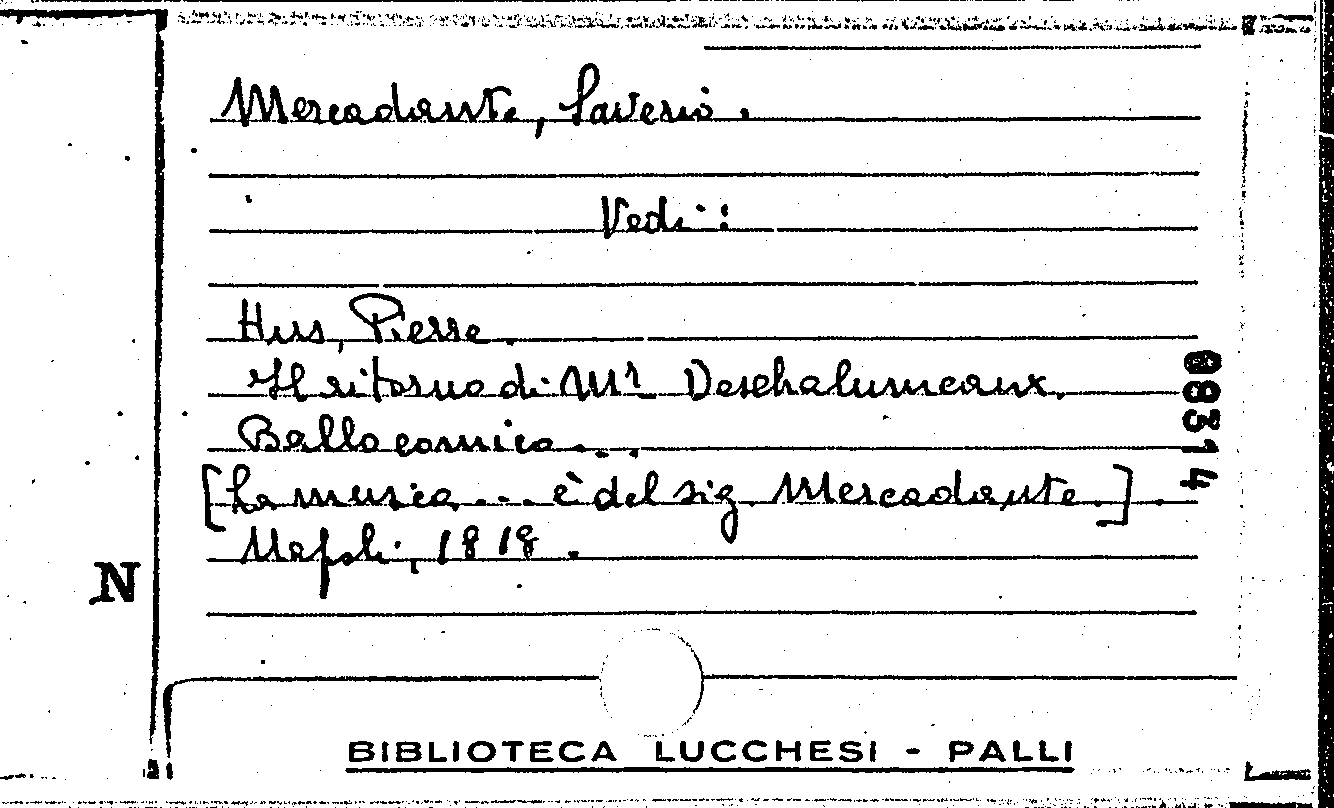 Mercadante, Saverio.
Vedi:
Hus, Pierre.
Il ritorno di Mr Deschalumeaux.
Ballo comico...
[La musica... è del sig. Mercadante.].
Napoli, 1818.
08314
N
BIBLIOTECA LUCCHESI - PALLI